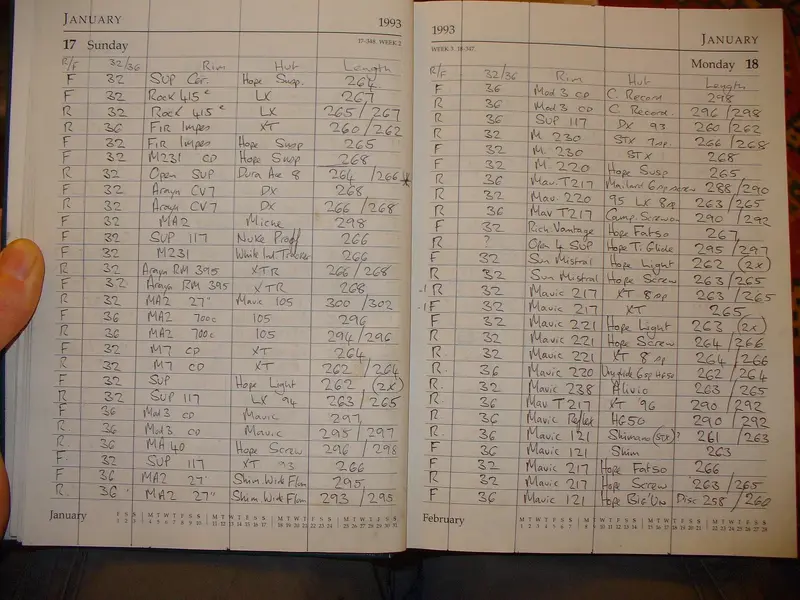 JANUARY 1993
17 Sunday 17-348. WEEK 2
R/F 32/36 Rim Hub Length
F 32 SUP Cer. Hope Susp. 264
F 32 Rock 415 c LX 267
R 32 Rock 415 c LX 265/267
R 36 FiR Impes XT 260/262
F 32 FiR Impes Hope Susp 265
F 32 M231 CD Hope Susp 268
R 32 Open SUP Dura Ace 8 264/266*
F 32 Araya CV7 DX 268
R 32 Araya CV7 DX 266/268
F 32 MA2 Miche 298
F 32 SUP 117 Nuke Proof 266
F 32 M231 White Ind Tracker 266
R 32 Araya RM 395 XTR 266/268
F 32 Araya RM 395 XTR 268
R 32 MA2 27" Mavic 105 300/302
F 36 MA2 700c 105 296
R 36 MA2 700c 105 294/296
F 32 M7 CD XT 264
R 32 M7 CD XT 262/264
F 32 SUP Hope Light 262 (2x)
R 32 SUP 117 LX 94 263/265
F 36 Mod 3 CD Mavic 297
R 36 Mod 3 CD Mavic 295/297
R 36 MA 40 Hope Screw 296/298
F 32 SUP 117 XT 93 266
F 36 MA2 27" Shim Wide Flan 295
R 36 MA2 27" Shim Wide Flan 293/295
January
1993
JANUARY
WEEK 3. 18-347.
Monday 18
R/F 32/36 Rim Hub Length
F 36 Mod 3 CD C. Record 298
R 36 Mod 3 CD C Record 296/298
R 36 SUP 117 DX 93 260/262
R 32 M. 230 STX 7sp. 266/268
F 32 M. 230 STX 268
F 32 M. 220 Hope Susp 265
R 36 Mav. T217 Mailard 6sp screw 288/290
R 32 Mav. 220 95 LX 8sp 263/265
R 36 Mav T217 Camp. Screwon 290/292
F 32 Rich. Vantage Hope Fatso 267
R ? Open 4 SUP Hope T. Glide 295/297
F 32 Sun Mistral Hope Light 262 (2x)
R 32 Sun Mistral Hope Screw 263/265
-1 R 32 Mavic 217 XT 8sp 263/265
-1 F 32 Mavic 217 XT 265
F 32 Mavic 221 Hope Light 263 (2x)
R 32 Mavic 221 Hope Screw 264/266
R. 32 Mavic 221 XT 8sp 264/266
R. 36 Mavic 220 6sp HG50 262/264
R 32 Mavic 238 Alivio 263/265
R 36 Mav T217 XT 96 290/292
R 36 Mavic Reflex HG50 290/292
R. 36 Mavic 121 Shimano ? 261/263
F 36 Mavic 121 Shim 263
F 32 Mavic 217 Hope Fatso 266
R 32 Mavic 217 Hope Screw 263/265
F 36 Mavic 121 Hope Big'Un Disc 258/260
February